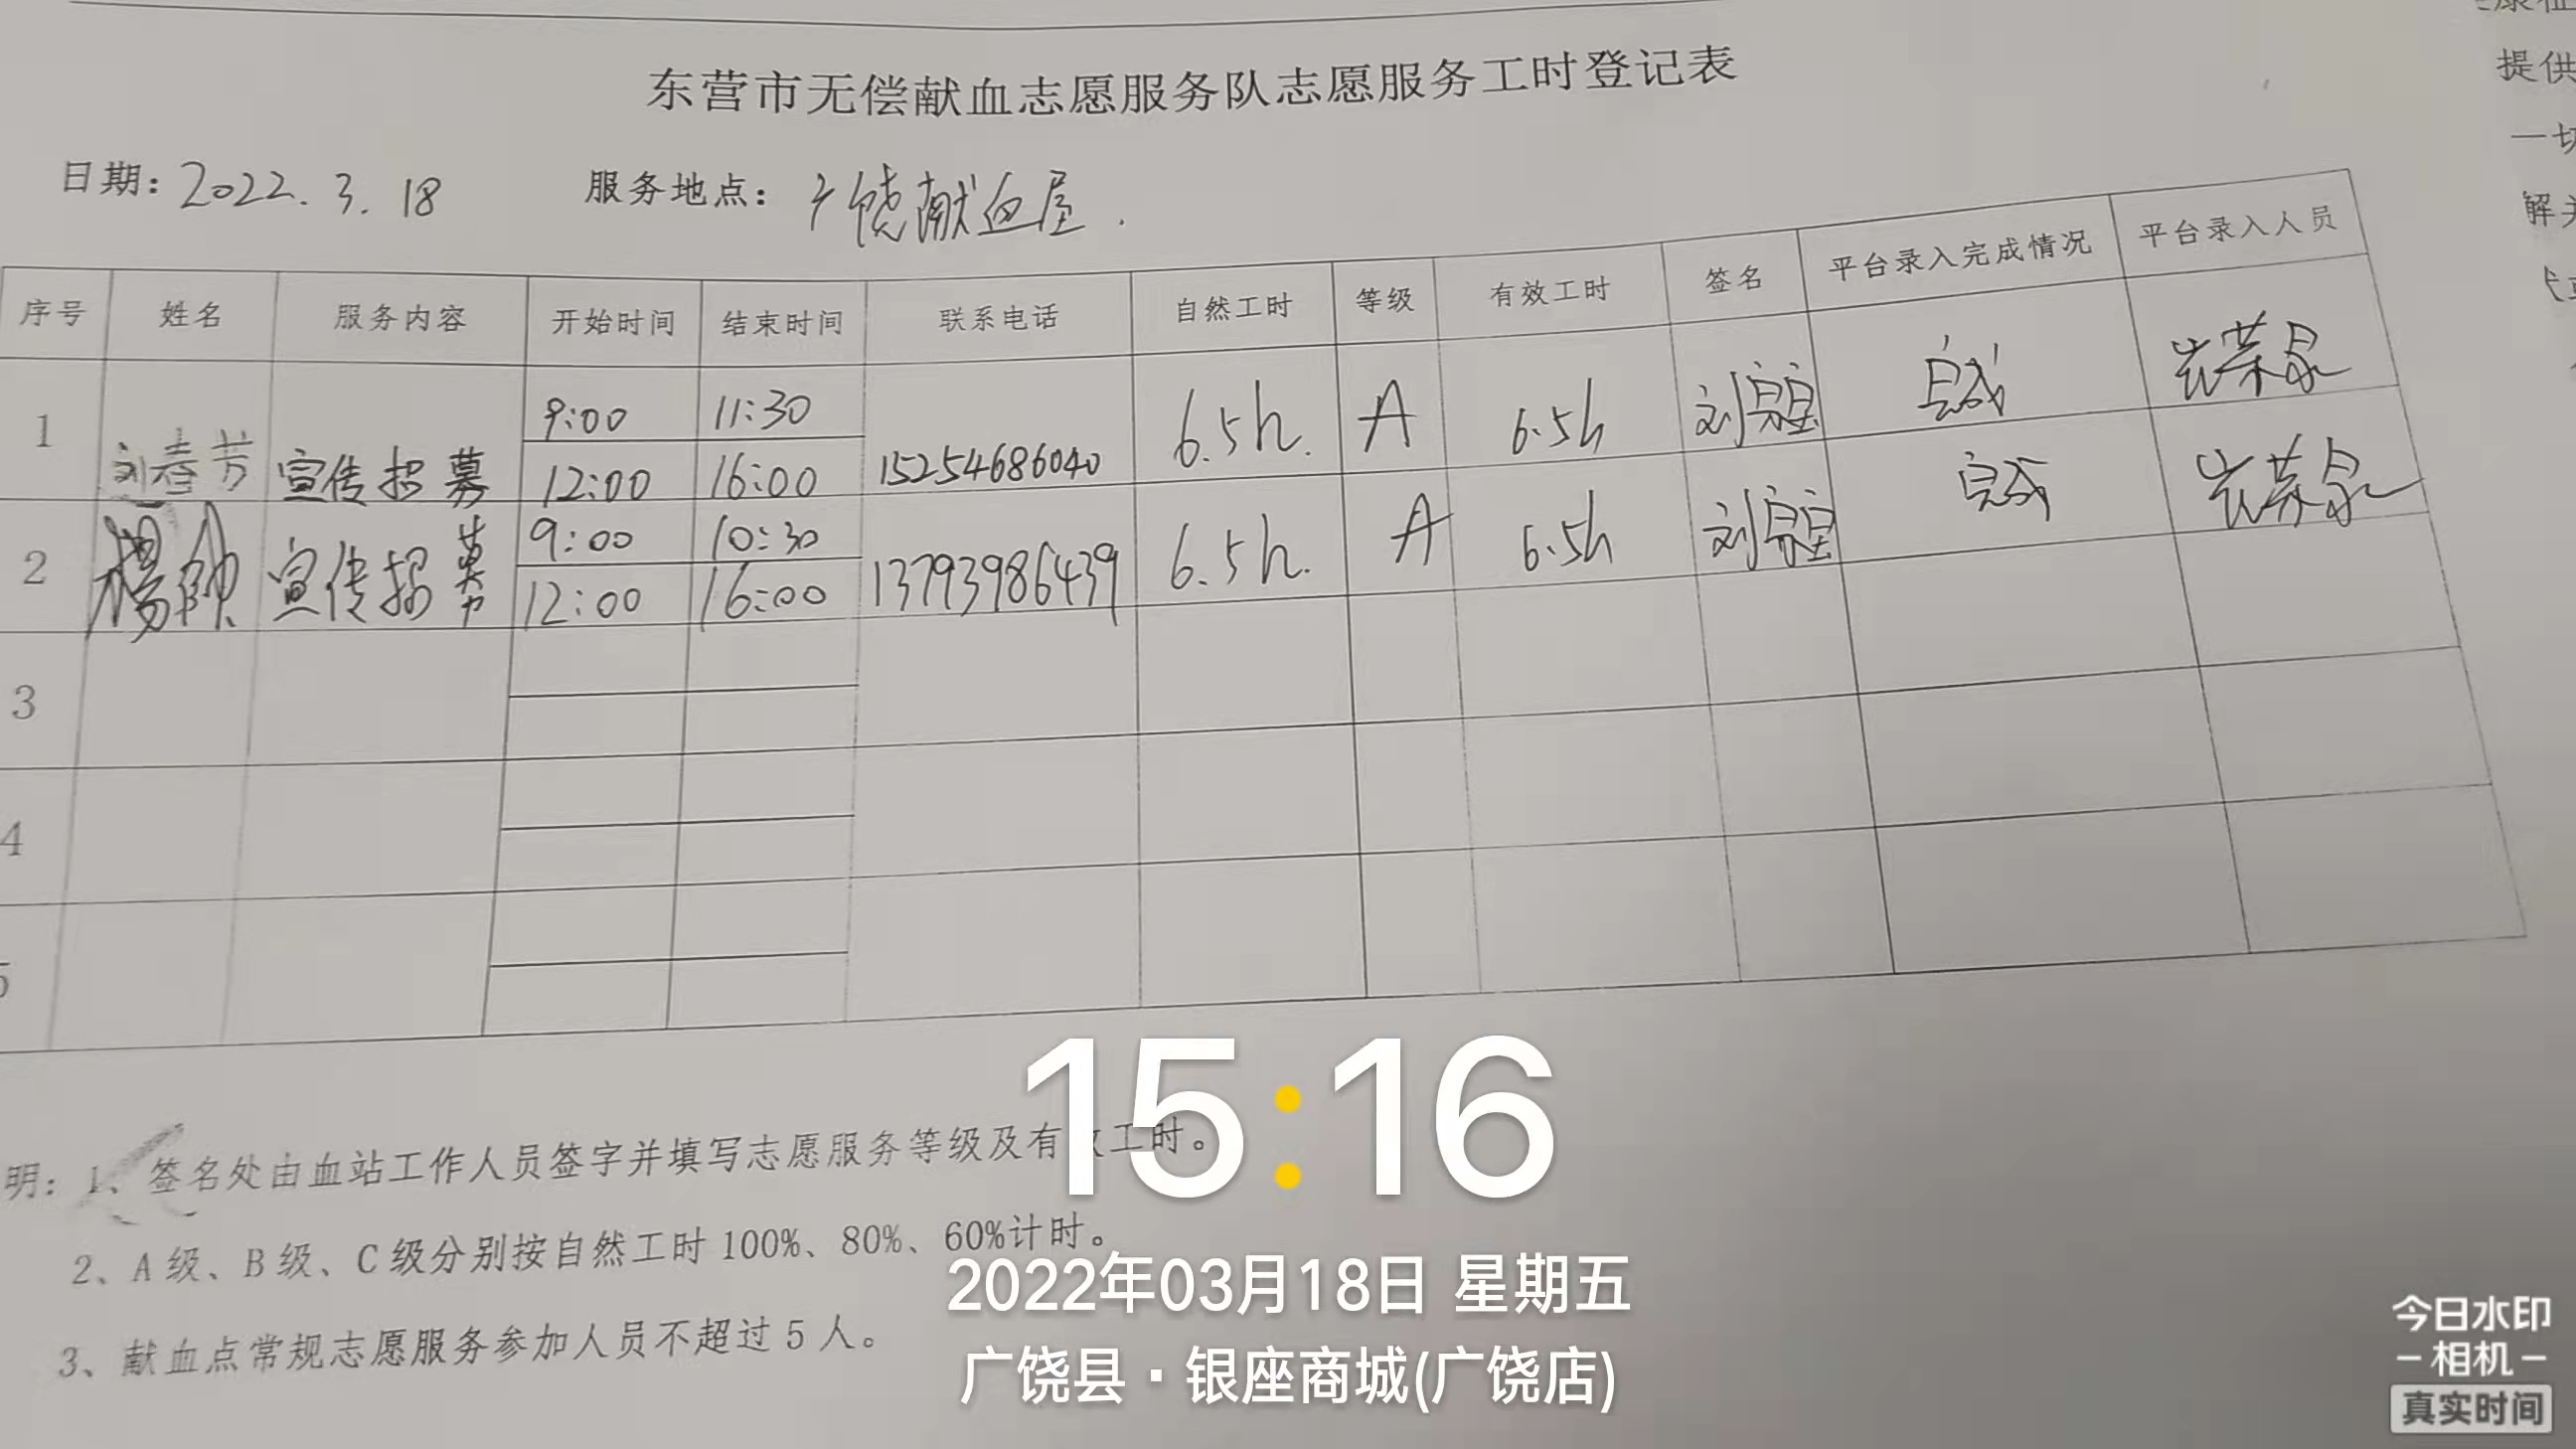 东营市无偿献血志愿服务队志愿服务工时登记表
日期: 2022.3.18 服务地点: 广饶献血屋.
序号 姓名 服务内容 开始时间 结束时间 联系电话 自然工时 等级 有效工时 签名 平台录入完成情况 平台录入人员
1 刘春芳 宣传招募 9:00 11:30 15254686040 6.5h. A 6.5h 刘 完成
12:00 16:00
2 楊帥 宣传招募 9:00 10:30 13793986439 6.5h. A 6.5h 刘 完成
12:00 16:00
3
4
5
明: 1、签名处由血站工作人员签字并填写志愿服务等级及有效工时。
2、A 级、B 级、C 级分别按自然工时 100%、80%、60%计时。
3、献血点常规志愿服务参加人员不超过 5 人。
15:16
2022年03月18日 星期五
广饶县·银座商城(广饶店)
今日水印
-相机-
真实时间
提供
一切
解